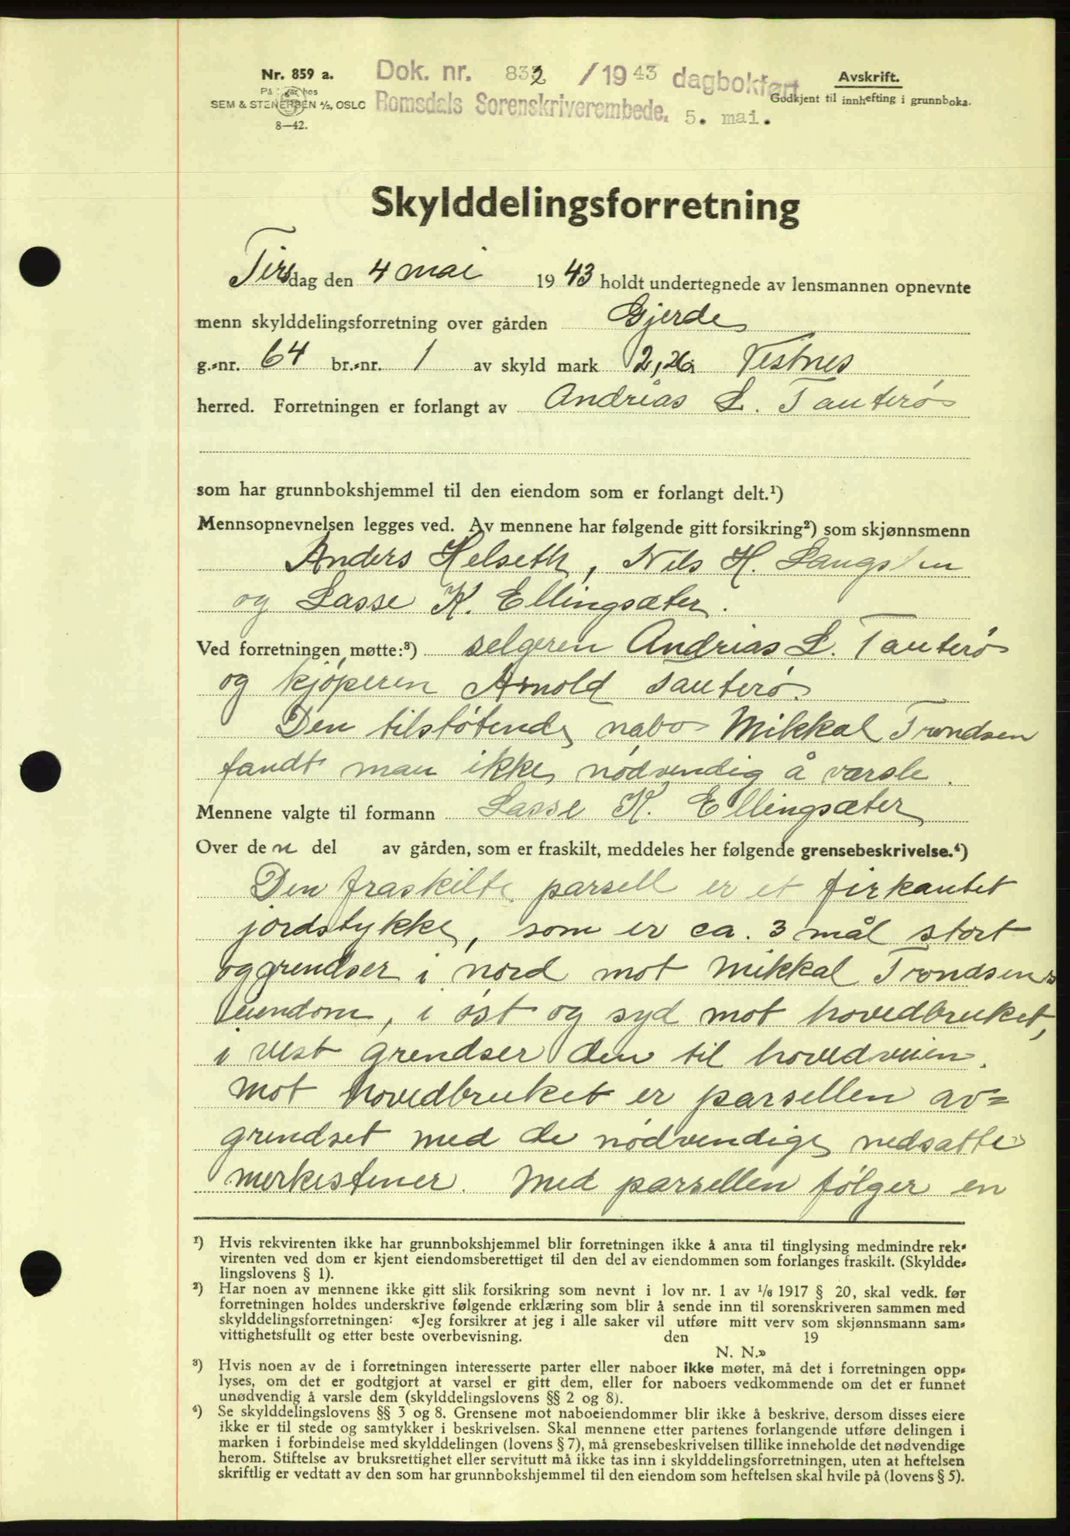 Nr. 859 a.
SEM & STENERSEN A/S, OSLO
8—42.
Dok. nr. 832 /1943 dagbokført
Romsdals Sorenskriverembede. 5. mai.
Avskrift.
Godkjent til innhefting i grunnboka.
Skylddelingsforretning
Tirsdag den 4 mai 1943 holdt undertegnede av lensmannen opnevnte
menn skylddelingsforretning over gården Gjerde
g.-nr. 64 br.-nr. 1 av skyld mark 2,26 Vestnes
herred. Forretningen er forlangt av Andrias L. Tauterö
som har grunnbokshjemmel til den eiendom som er forlangt delt.¹)
Mennsopnevnelsen legges ved. Av mennene har følgende gitt forsikring²) som skjønnsmenn
Anders Helseth, Nils H. Langslen
og Lasse K. Ellingsæter.
Ved forretningen møtte:³) selgeren Andrias L. Tauterö
og kjöperen Arnold Tauterö.
Den tilstötende nabo Mikkal Trondsen
fandt man ikke nödvendig å varsle.
Mennene valgte til formann Lasse K. Ellingsæter
Over den del av gården, som er fraskilt, meddeles her følgende grensebeskrivelse.⁴)
Den fraskilte parsell er et firkantet
jordstykke, som er ca. 3 mål stort
og grendser i nord mot Mikkal Trondsens
eiendom, i öst og syd mot hovedbruket,
i vest grendser den til hovedveien.
Mot hovedbruket er parsellen av=
grendset med de nödvendige nedsatte
merkestener. Med parsellen fölger en
¹) Hvis rekvirenten ikke har grunnbokshjemmel blir forretningen ikke å anta til tinglysing medmindre rek-
virenten ved dom er kjent eiendomsberettiget til den del av eiendommen som forlanges fraskilt. (Skyldde-
lingslovens § 1).
²) Har noen av mennene ikke gitt slik forsikring som nevnt i lov nr. 1 av 1/6 1917 § 20, skal vedk. før
forretningen holdes underskrive følgende erklæring som blir å sende inn til sorenskriveren sammen med
skylddelingsforretningen: «Jeg forsikrer at jeg i alle saker vil utføre mitt verv som skjønnsmann sam-
vittighetsfullt og etter beste overbevisning. den 19
N. N.»
³) Hvis noen av de i forretningen interesserte parter eller naboer ikke møter, må det i forretningen opp-
lyses, om det er godtgjort at varsel er gitt dem, eller for naboers vedkommende om det er funnet
unødvendig å varsle dem (skylddelingslovens §§ 2 og 8).
⁴) Se skylddelingslovens §§ 3 og 8. Grensene mot naboeiendommer blir ikke å beskrive, dersom disses eiere
ikke er til stede og samtykker i beskrivelsen. Skal mennene etter partenes forlangende utføre delingen i
marken i forbindelse med skylddelingen (lovens § 7), må grensebeskrivelsen tillike inneholde det nødvendige
herom. Stiftelse av bruksrettighet eller servitutt må ikke tas inn i skylddelingsforretningen, uten at heftelsen
skriftlig er vedtatt av den som har grunnbokshjemmel til den eiendom som heftelsen skal hvile på (lovens § 5).